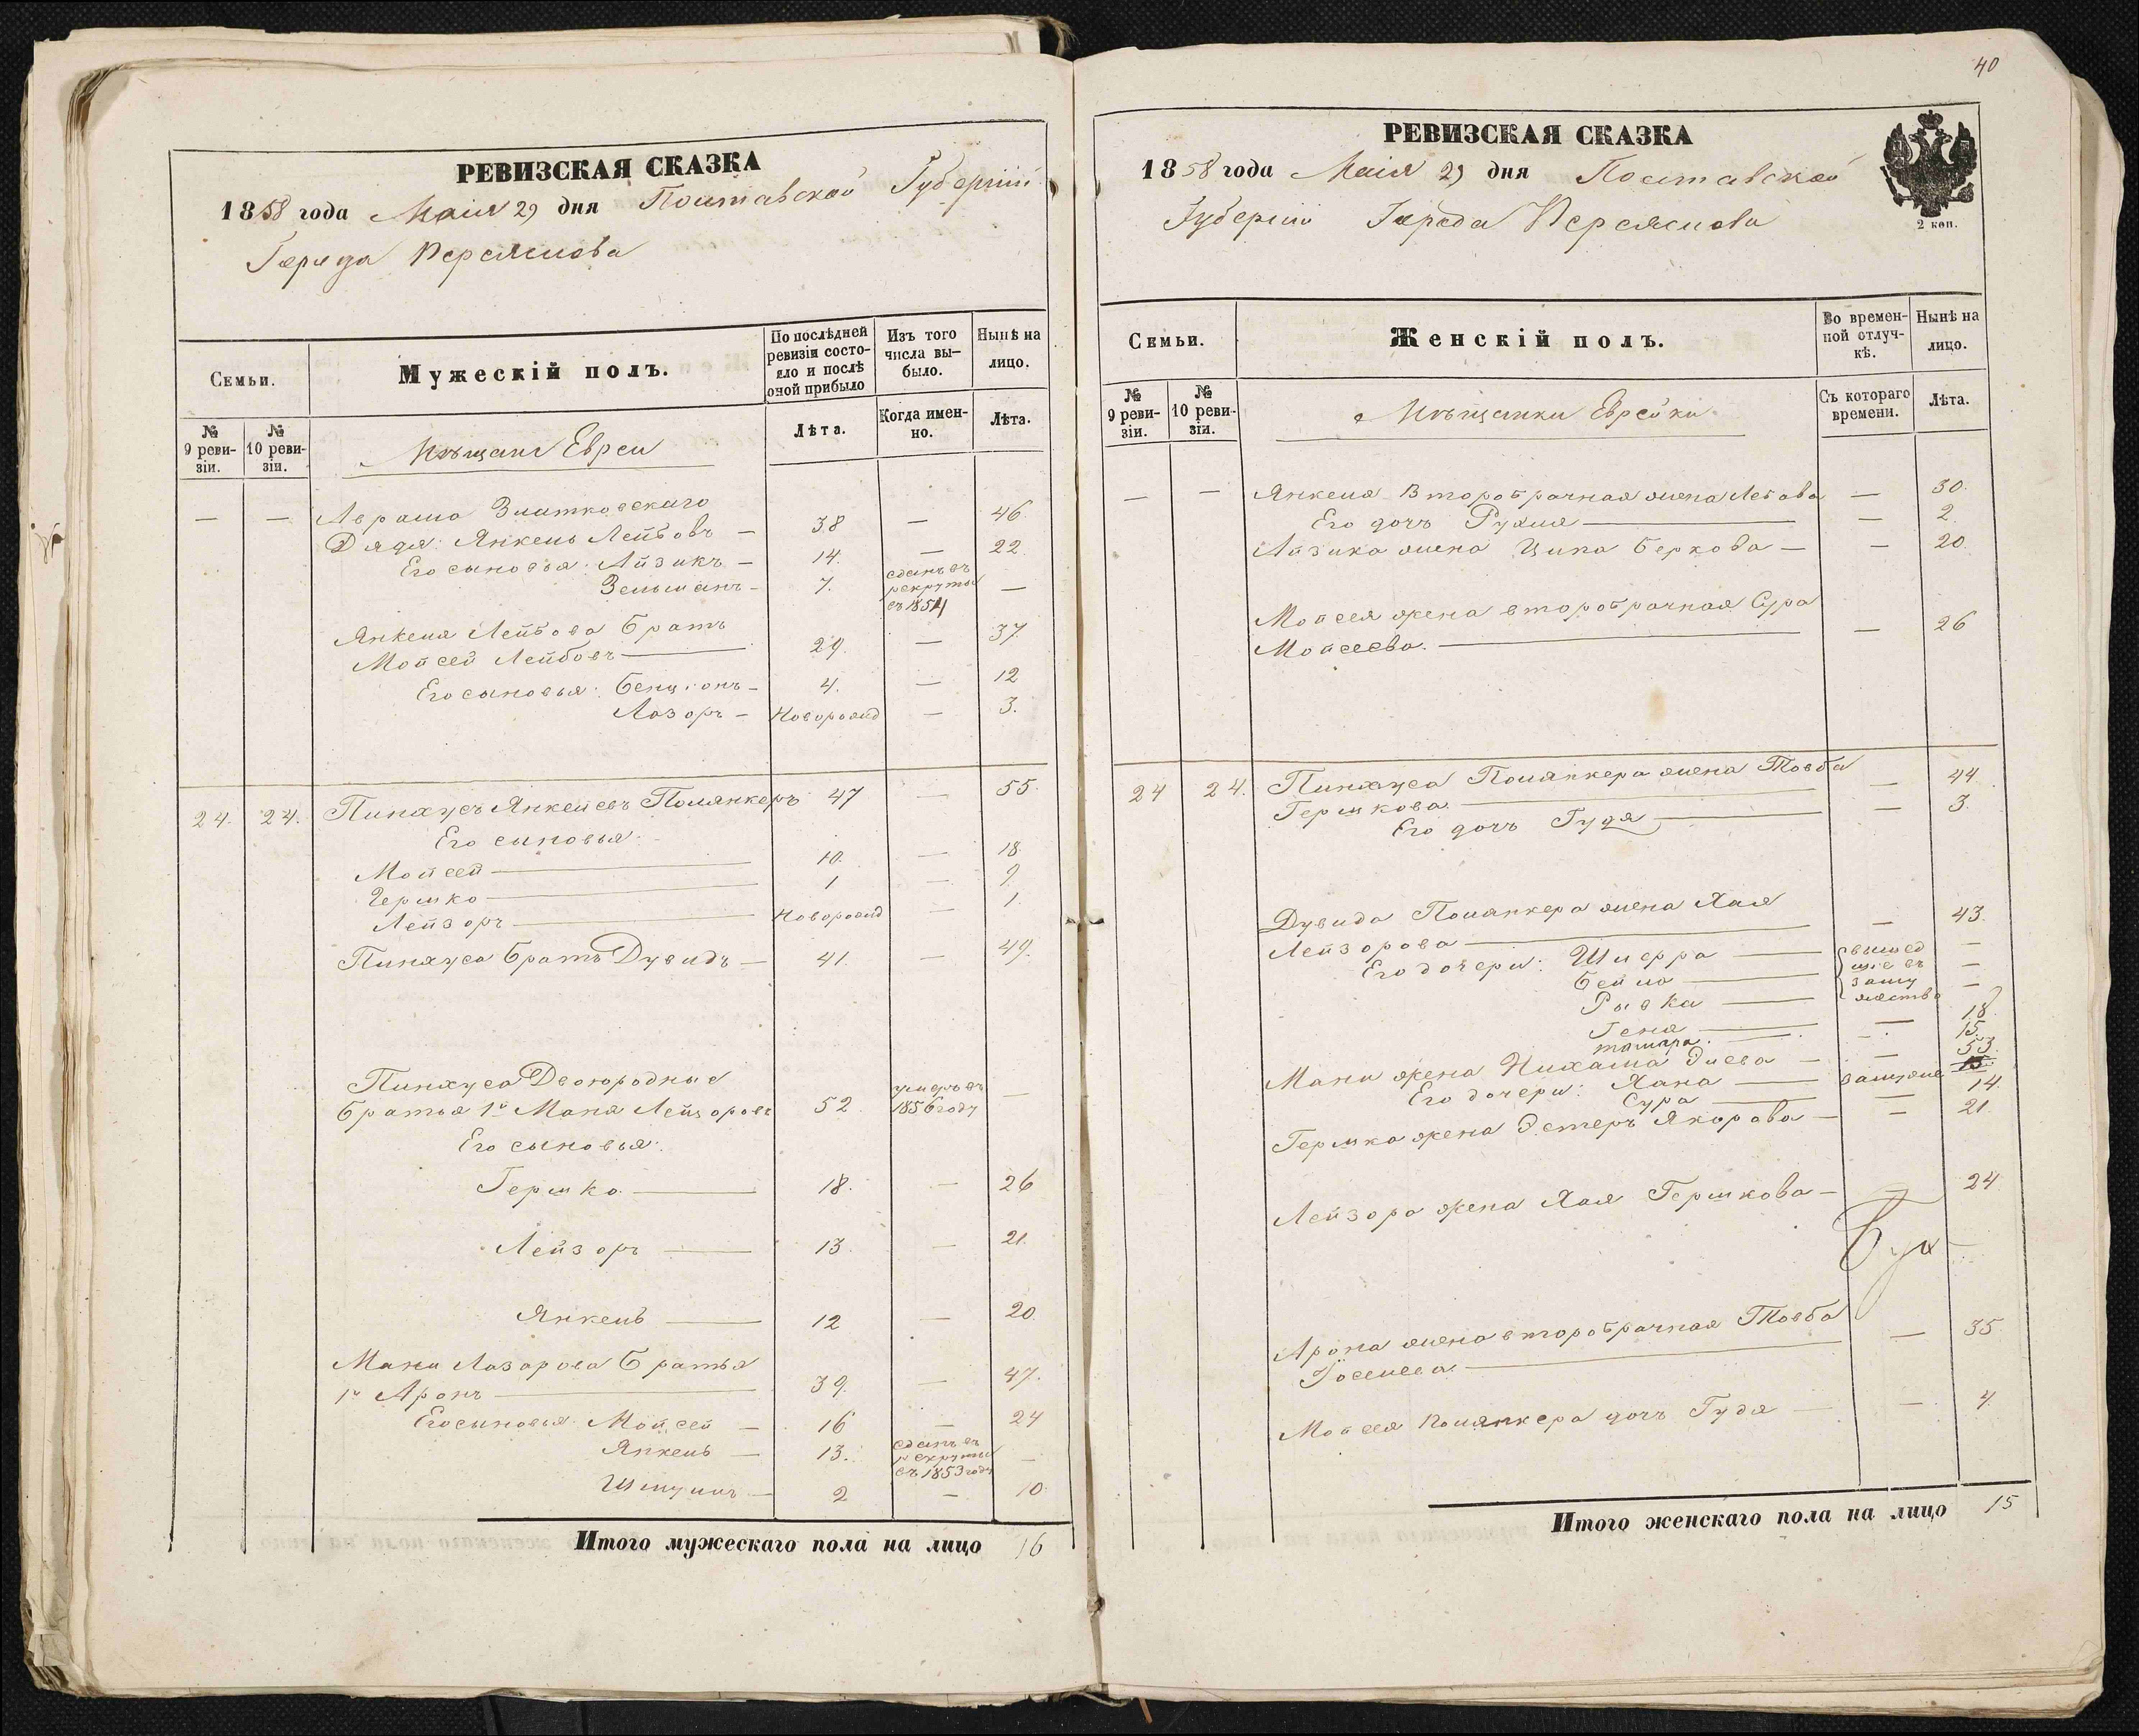 РЕВИЗСКАЯ СКАЗКА
1858 года Маія 29 дня Полтавской Губерніи
Города Переяслова
Семьи.
Мужескій полъ.
По послѣдней ревизіи состояло и послѣ оной прибыло
Изъ того числа выбыло.
Нынѣ на лицо.
№ 9 ревизіи.
№ 10 ревизіи.
Мѣщане Евреи
Лѣта.
Когда именно.
Лѣта.
— — Аврама Златковскаго
Дядя: Янкель Лейбовъ — 38 — 46
Его сыновья: Айзикъ — 14. — 22
Зельманъ — 7. сданъ въ рекруты въ 1854 —
Янкеля Лейбова братъ
Мойсей Лейбовъ — 29. — 37.
Его сыновья: Бенціонъ — 4. — 12
Лазоръ — Новорожд — 3.
24. 24. Пинхусъ Янкелевъ Полянкеръ 47 — 55.
Его сыновья:
Мойсей — 10. — 18.
Гершко — 1 — 9.
Лейзоръ — Новорожд — 1.
Пинхуса братъ Дувидъ — 41. — 49.
Пинхуса Двоюродные
братья 1й Маня Лейзоровъ 52 умеръ въ 1856 году —
Его сыновья:
Гершко — 18. — 26
Лейзоръ — 13. — 21.
Янкель — 12 — 20
Мани Лазарова братья
1й Аронъ — 39. — 47.
Его сыновья: Мойсей — 16 — 24
Янкель — 13. сданъ въ рекруты въ 1853 году —
Шмуиль — 2 — 10
Итого мужескаго пола на лицо 16
40
РЕВИЗСКАЯ СКАЗКА
1858 года Маія 29 дня Полтавской
Губерніи Города Переяслова
2 коп.
Семьи.
Женскій полъ.
Во временной отлучкѣ.
Нынѣ на лицо.
№ 9 ревизіи.
№ 10 ревизіи.
Мѣщанки Еврейки
Съ котораго времени.
Лѣта.
— — Янкеля Второбрачная жена — 30.
Его дочь Рухля — 2.
Айзика жена Ципа Беркова — — 20.
Мойсея жена второбрачная Сура
Мойсеева. — — 26
24 24. Пинхуса Полянкера жена Товба
Гершкова. — — 44
Его дочь Гудя — — 3.
Дувида Полянкера жена Хая
Лейзорова — — 43.
Его дочери: — вышедшіе въ замужество —
Бейла — —
Рывка — —
Геня — — 18.
тамара. — — 15.
Мани жена — — 53.
Его дочери: Хана — замуже
Сура — — 14.
Гершка жена Эстеръ — — 21.
Лейзора жена Хая Гершкова — — 24
Арона жена второбрачная Товба
— — 35.
Мойсея Полянкера дочь Гудя — — 4.
Итого женскаго пола на лицо 15